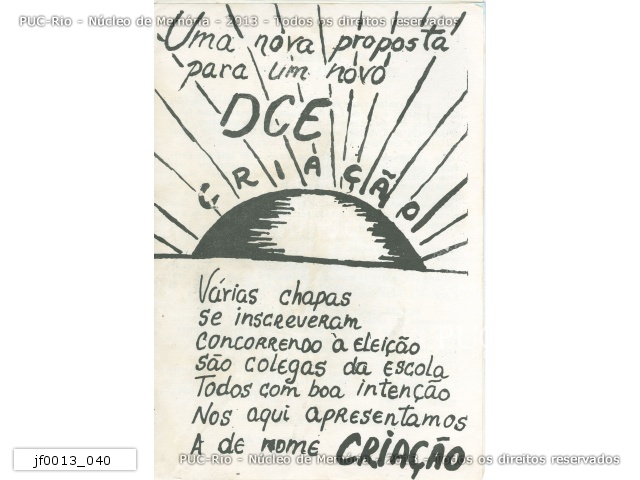 PUC-Rio - Núcleo de Memória - 2013 - Todos os direitos reservados
Uma nova proposta
para um novo
DCE
CRIAÇÃO
Várias chapas
se inscreveram
concorrendo à eleição
são colegas da escola
Todos com boa intenção
Nos aqui apresentamos
A de nome CRIAÇÃO
jf0013_040
PUC-Rio - Núcleo de Memória - 2013 - Todos os direitos reservados